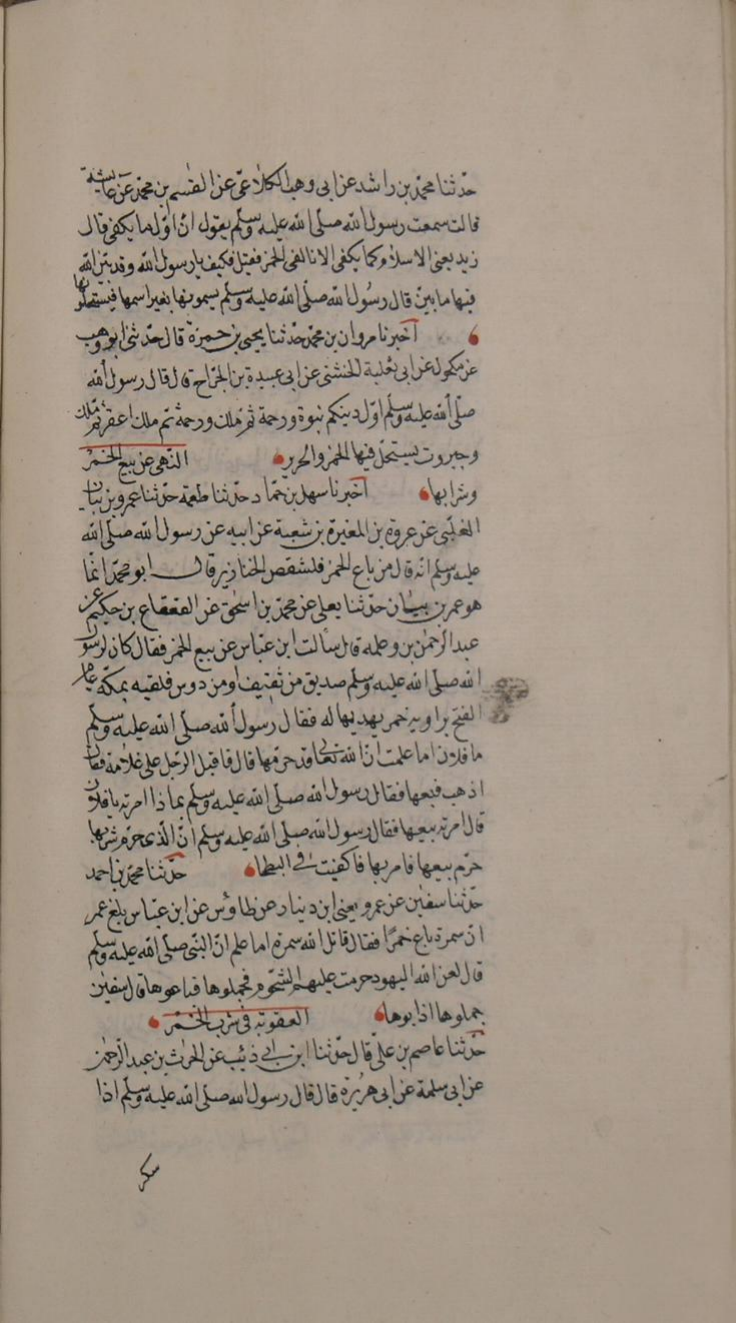 حدثنا محمد بن راشد عن ابى وهب الكلاعى عن القسم بن محمد عن عايشة
قالت سمعت رسول الله صلى الله عليه وسلم يقول ان اول ما يكفى قال
زيد يعنى الاسلام كما يكفى الانا لفى الخمر فقيل فكيف يا رسول الله وقد بين الله
فيها ما بين قال رسول الله صلى الله عليه وسلم يسمونها بغير اسمها فيستحلونها
اخبرنا مروان بن محمد حدثنا يحيى بن حمزة قال حدثنى ابو وهب
عن مكحول عن ابى ثعلبة الخشنى عن ابى عبيدة بن الجراح قال قال رسول الله
صلى الله عليه وسلم اول دينكم نبوة ورحمة ثم ملك ورحمة ثم ملك اعفر ثم ملك
وجبروت يستحل فيها الخمر والحرير النهى عن بيع الخمر
وشرابها اخبرنا سهل بن حماد حدثنا طعمة حدثنا عمرو بن بيان
التغلبى عن عروة بن المغيرة بن شعبة عن ابيه عن رسول الله صلى الله
عليه وسلم انه قال من باع الخمر فليشقص الخنازير قال ابو محمد انما
هو عمر بن بيان حدثنا يعلى عن محمد بن اسحق عن القعقاع بن حكيم عن
عبد الرحمن بن وعلة قال سالت ابن عباس عن بيع الخمر فقال كان لرسول
الله صلى الله عليه وسلم صديق من ثقيف او من دوس فلقيه بمكة عام
الفتح براوية خمر يهديها له فقال رسول الله صلى الله عليه وسلم
يا فلان اما علمت ان الله تعالى قد حرمها قال فاقبل الرجل على غلامه فقال
اذهب فبعها فقال رسول الله صلى الله عليه وسلم بماذا امرته يا فلان
قال امرته ببيعها فقال رسول الله صلى الله عليه وسلم ان الذى حرم شربها
حرم بيعها فامر بها فاكفيت فى البطحا حدثنا محمد بن احمد
حدثنا سفين عن عمرو يعنى ابن دينار عن طاوس عن ابن عباس بلغ عمر
ان سمرة باع خمرا فقال قاتل الله سمرة اما علم ان النبى صلى الله عليه وسلم
قال لعن الله اليهود حرمت عليهم الشحوم فجملوها فباعوها قال سفين
جملوها اذابوها العقوبة فى شرب الخمر
حدثنا عاصم بن على قال حدثنا ابن ابى ذئب عن الحرث بن عبد الرحمن
عن ابى سلمة عن ابى هريرة قال قال رسول الله صلى الله عليه وسلم اذا
سكر